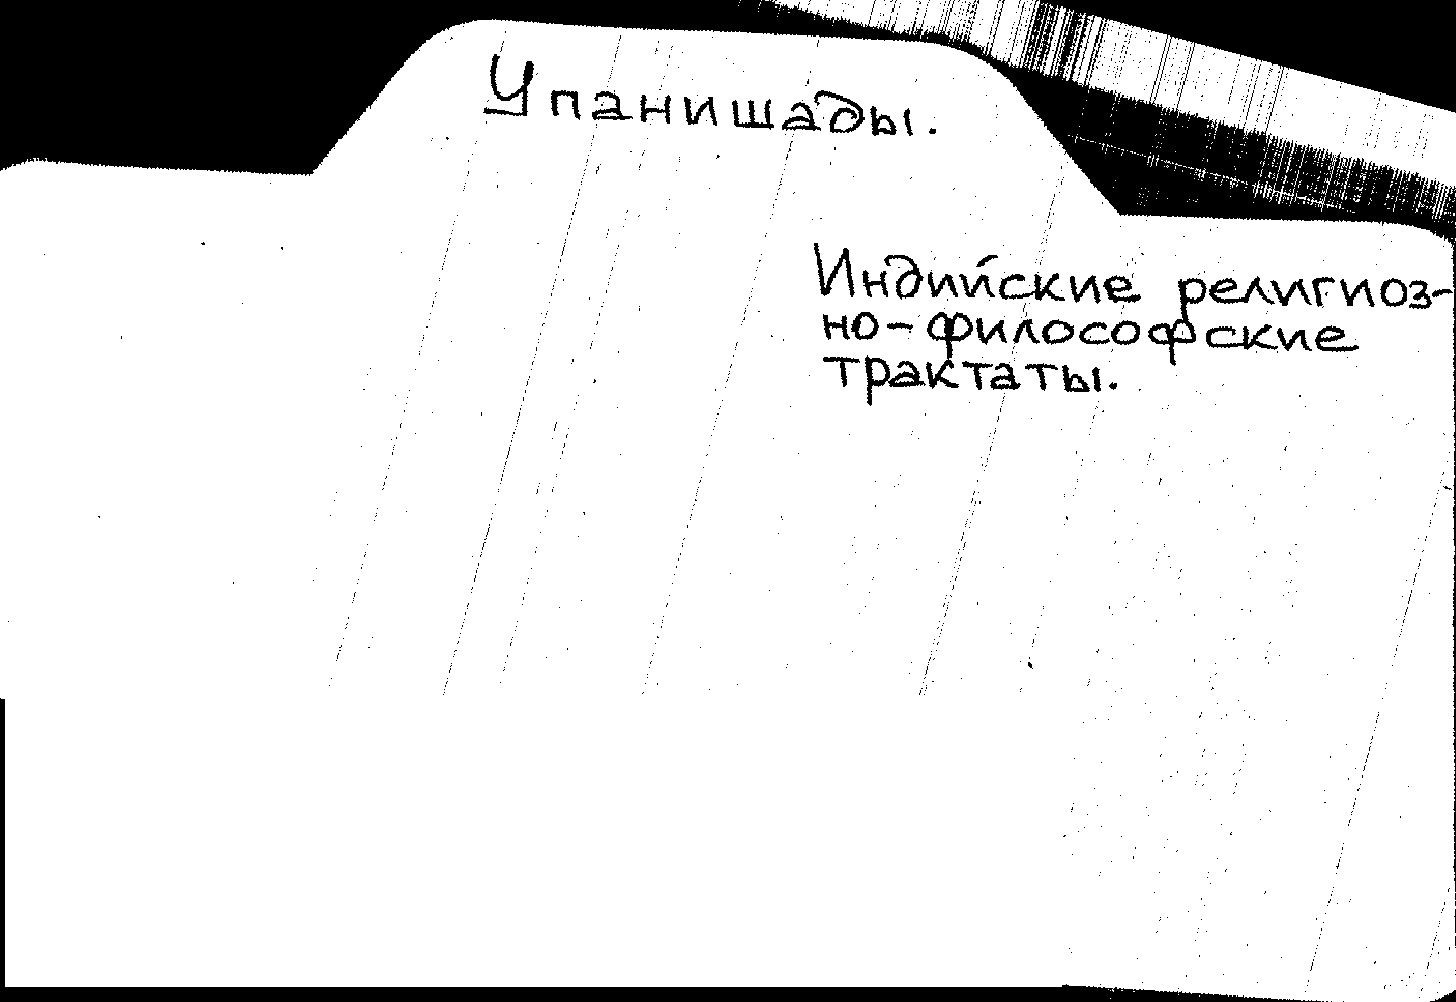 Упанишады.
Индийские религиоз-
но-философские
трактаты.